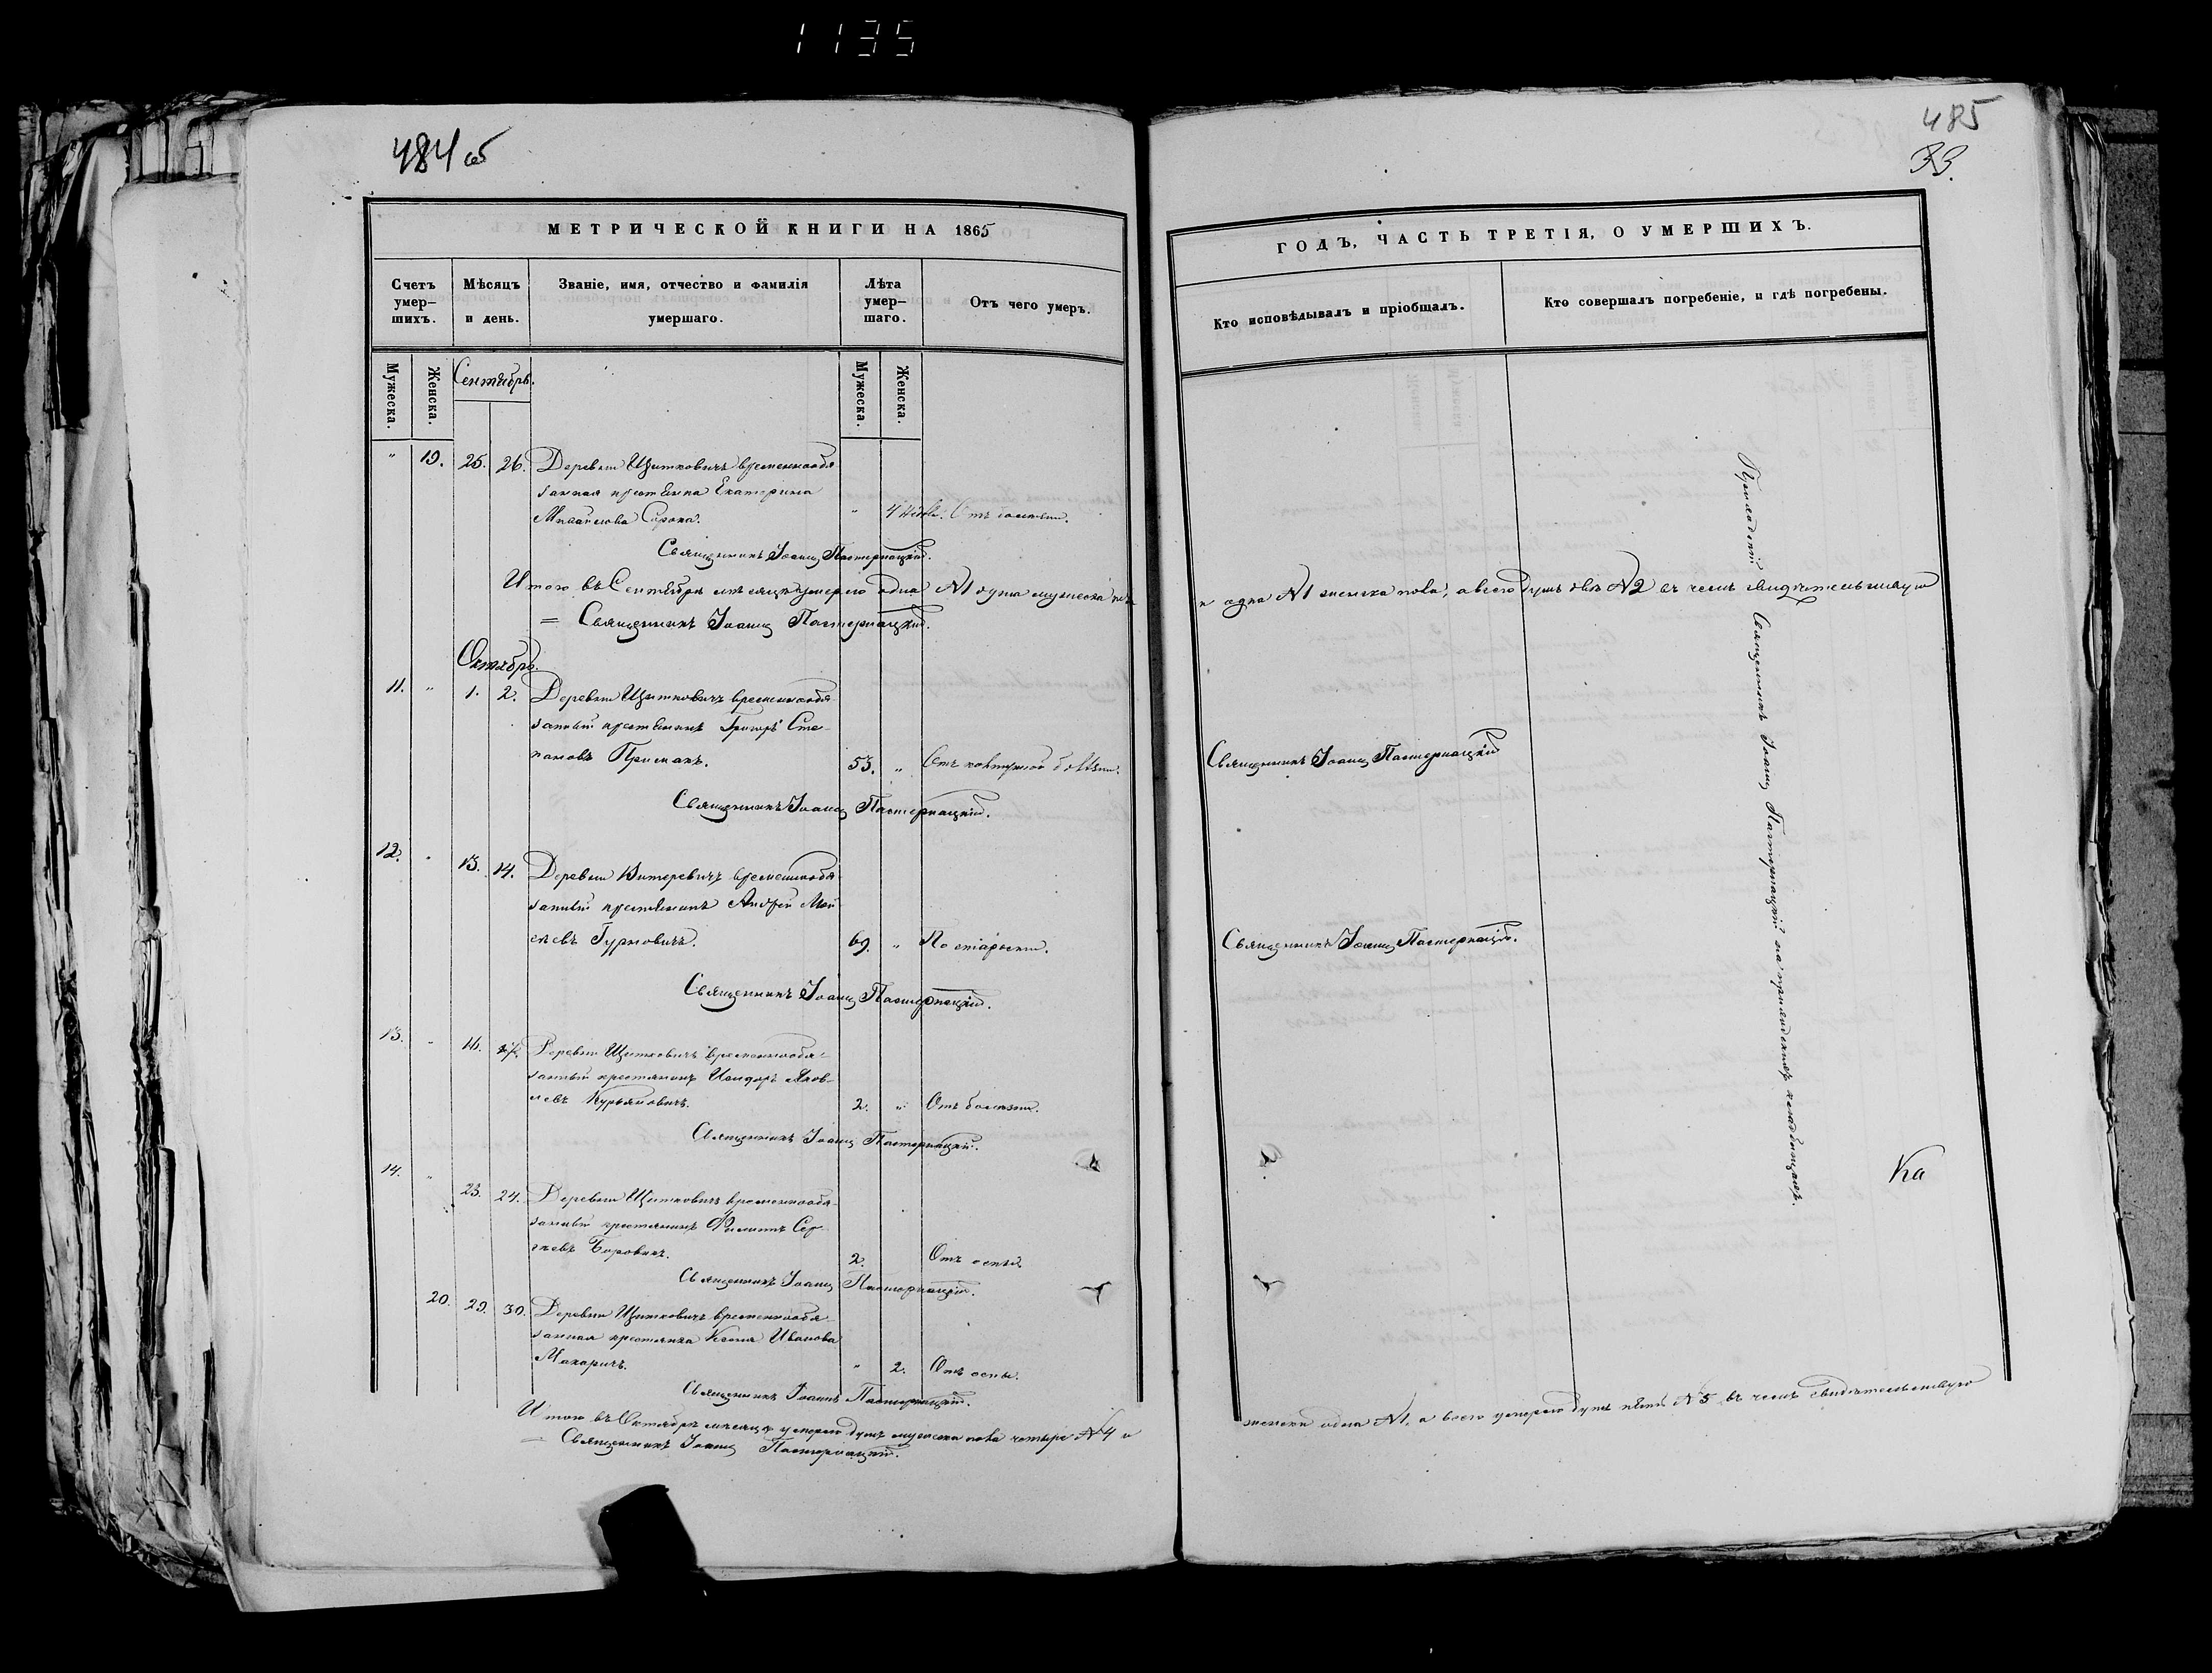 1135
484 об
МЕТРИЧЕСКОЙ КНИГИ НА 1865
Счетъ умер-шихъ.
Мѣсяцъ и день.
Званіе, имя, отчество и фамилія умершаго.
Лѣта умер-шаго.
Отъ чего умеръ.
Мужеска.
Женска.
Сентябрь.
Мужеска.
Женска.
" 19. 25. 26. Деревни Щитковичъ временнообя-
занная крестьянка Екатерина
Михайлова Сорока. " 4 недѣл. Отъ болѣзни.
Священникъ Іоаннъ Пастернацкій.
Итого въ Сентябрѣ мѣсяцѣ умерло одна №1 душа мужеска пола
= Священникъ Іоаннъ Пастернацкій.
Октябрь.
11. " 1. 2. Деревни Щитковичъ временнообя-
занный крестьянинъ Григорій Сте-
пановъ Примакъ. 53. " Отъ болѣзни.
Священникъ Іоаннъ Пастернацкій.
12. " 13. 14. Деревни временнообя-
занный крестьянинъ Андрей Мои-
сеевъ Гурновичъ. 69. " По старости.
Священникъ Іоаннъ Пастернацкій.
13. " 16. 17. Деревни Щитковичъ временнообя-
занный крестьянинъ Исидоръ Яков-
левъ Курьяновичъ. 2. " Отъ болѣзни.
Священникъ Іоаннъ Пастернацкій.
14. " 23. 24. Деревни Щитковичъ временнообя-
занный крестьянинъ Филиппъ Сер-
гѣевъ Боровикъ. 2. Отъ оспы.
Священникъ Іоаннъ Пастернацкій.
20. 29. 30. Деревни Щитковичъ временнообя-
занная крестьянка Ксенія Иванова
Макаричъ. " 2. Отъ оспы.
Священникъ Іоаннъ Пастернацкій.
Итого въ Октябрѣ мѣсяцѣ умерло душъ мужеска пола четыре №4 и
= Священникъ Іоаннъ Пастернацкій.
485
33.
ГОДЪ, ЧАСТЬ ТРЕТІЯ, О УМЕРШИХЪ.
Кто исповѣдывалъ и пріобщалъ.
Кто совершалъ погребеніе, и гдѣ погребены.
и одна №1 женска пола, а всего душъ двѣ №2 въ чемъ свидѣтельствую
Священникъ Іоаннъ Пастернацкій
Священникъ Іоаннъ Пастернацкій.
Приходскій Священникъ Іоаннъ Пастернацкій на приходскомъ кладбищѣ.
Ка
женска одна №1, а всего умерло душъ пять №5 въ чемъ свидѣтельствую